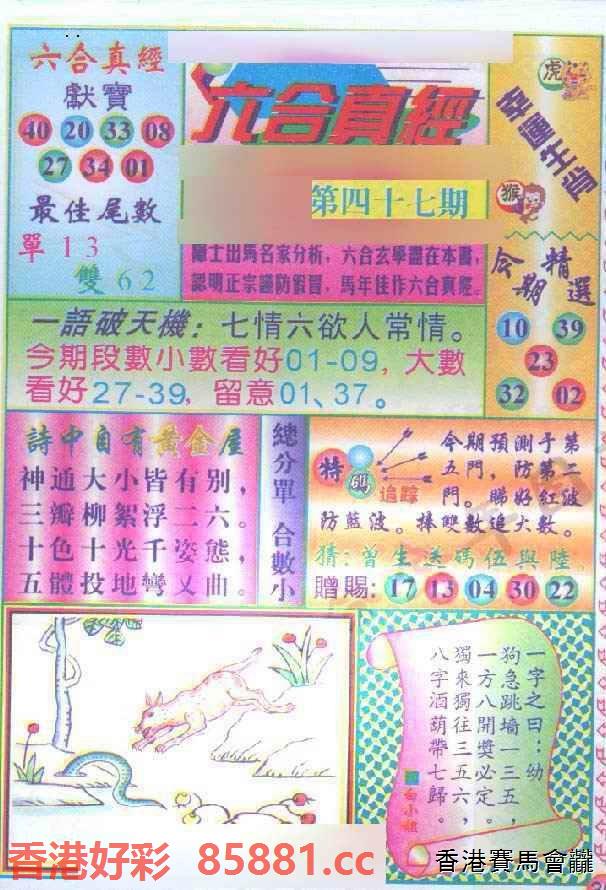 六合真經
獻寶
40 20 33 08
27 34 01
最佳尾數
單13
雙62
六合真經
第四十七期
隱士出馬名家分析，六合玄學盡在本書，
認明正宗謹防假冒，馬年佳作六合真經。
虎
幸運生肖
猴
今期精選
10 39
23
32 02
一語破天機：七情六欲人常情。
今期段數小數看好01-09，大數
看好27-39，留意01、37。
詩中自有黃金屋
神通大小皆有別，
三瓣柳絮浮二六。
十色十光千姿態，
五體投地彎又曲。
總分單 合數小
特碼
追踪
今期預測于第
五門，防第二
門。睇好紅波
防藍波。捧雙數追大數。
猜：曾生送碼伍與陸
贈賜：17 13 04 30 22
一字之曰：幼
狗急跳墻一三五，
一方八開獎必定。
獨來獨往三五六，
八字酒葫帶七歸。
白小姐
香港好彩 85881.cc
香港賽馬會